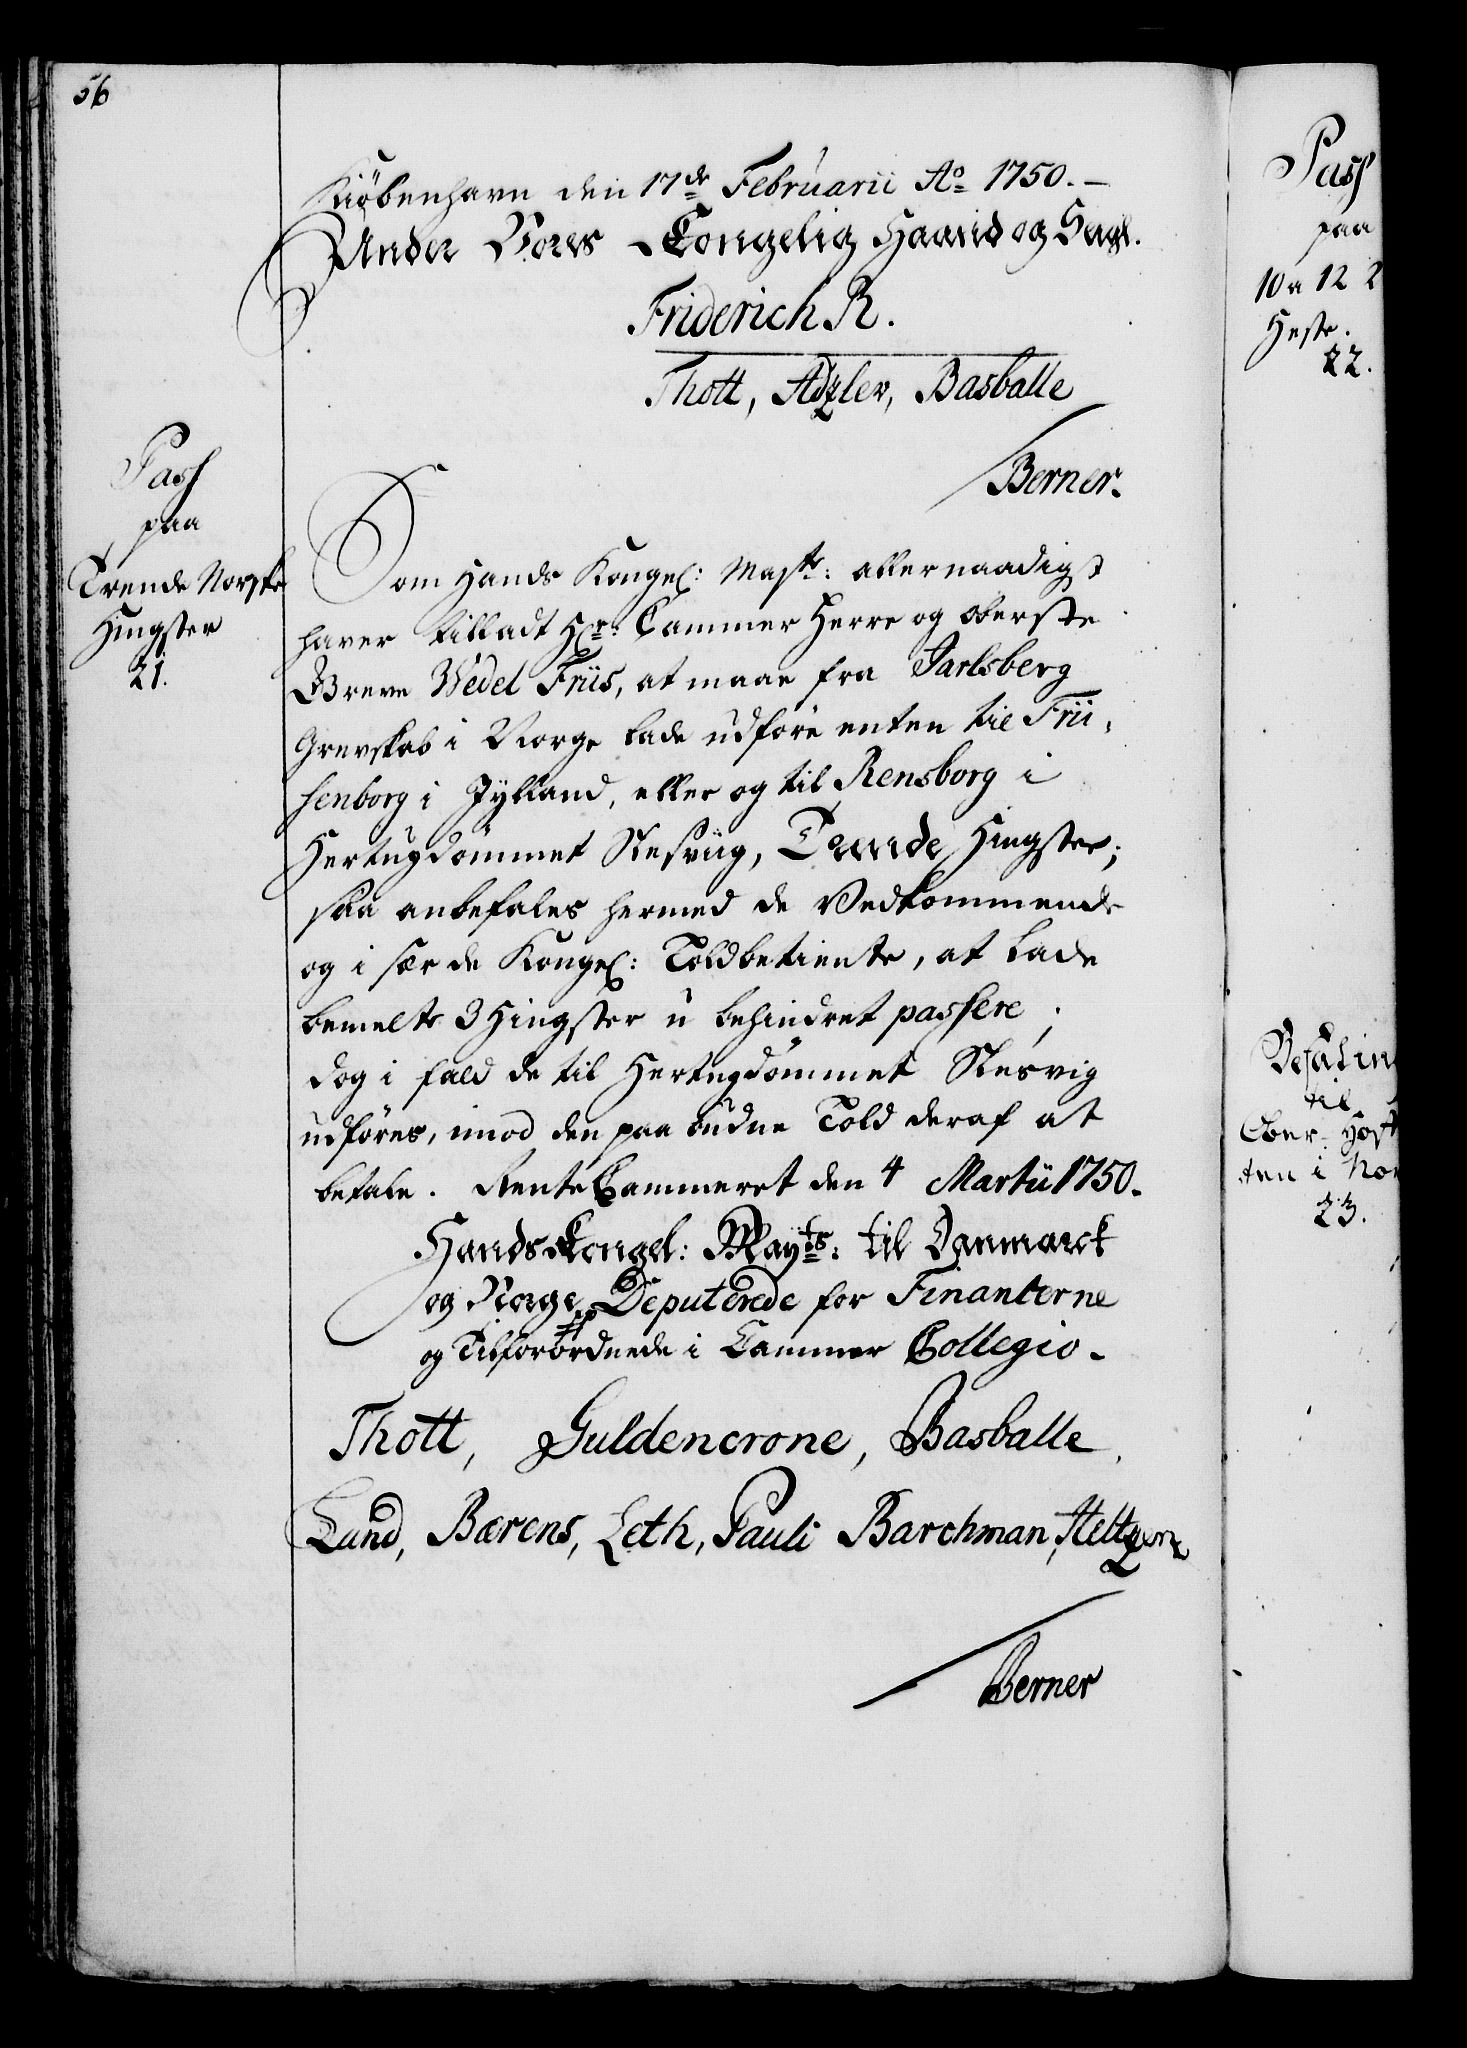 56
Kiöbenhavn den 17de Februarii Ao 1750.
Under Vores Kongelig Haand og Seigl.
Friderich R.
Thott, Adzlev, Basballe
Berner.
Pass
paa
Trende Norske
Hingster
21.
Som Hands Kongel: Mayts: allernaadigst
haver tilladt Hr: Cammer Herre og Oberste
Greve Wedel Friis, at maae fra Jarlsberg
Grevskab i Norge lade udföre enten til Frii-
senborg i Jylland, eller og til Rensborg i
Hertugdömmet Slesviig, Trende Hingster;
saa anbefales hermed de Vedkommende
og i sær de Kongel: Toldbetiente, at lade
bemelte 3 Hingster u behindret passere;
dog i fald de til Hertugdömmet Slesvig
udföres, imod den paa budne Told deraf at
betale. RenteCammeret den 4 Martii 1750.
Hands Kongel: Mayts: til Danmarck
og Norge Deputerede for Finanterne
og Tilforordnede i Cammer Collegio.
Thott, Guldencrone, Basballe,
Lund, Bærens, Leth, Pauli Barchman, Heltzen
Berner
Pass
paa
10 a 12
Heste.
22.
Befalin
til
Ober-Hof
ten i Nor
23.